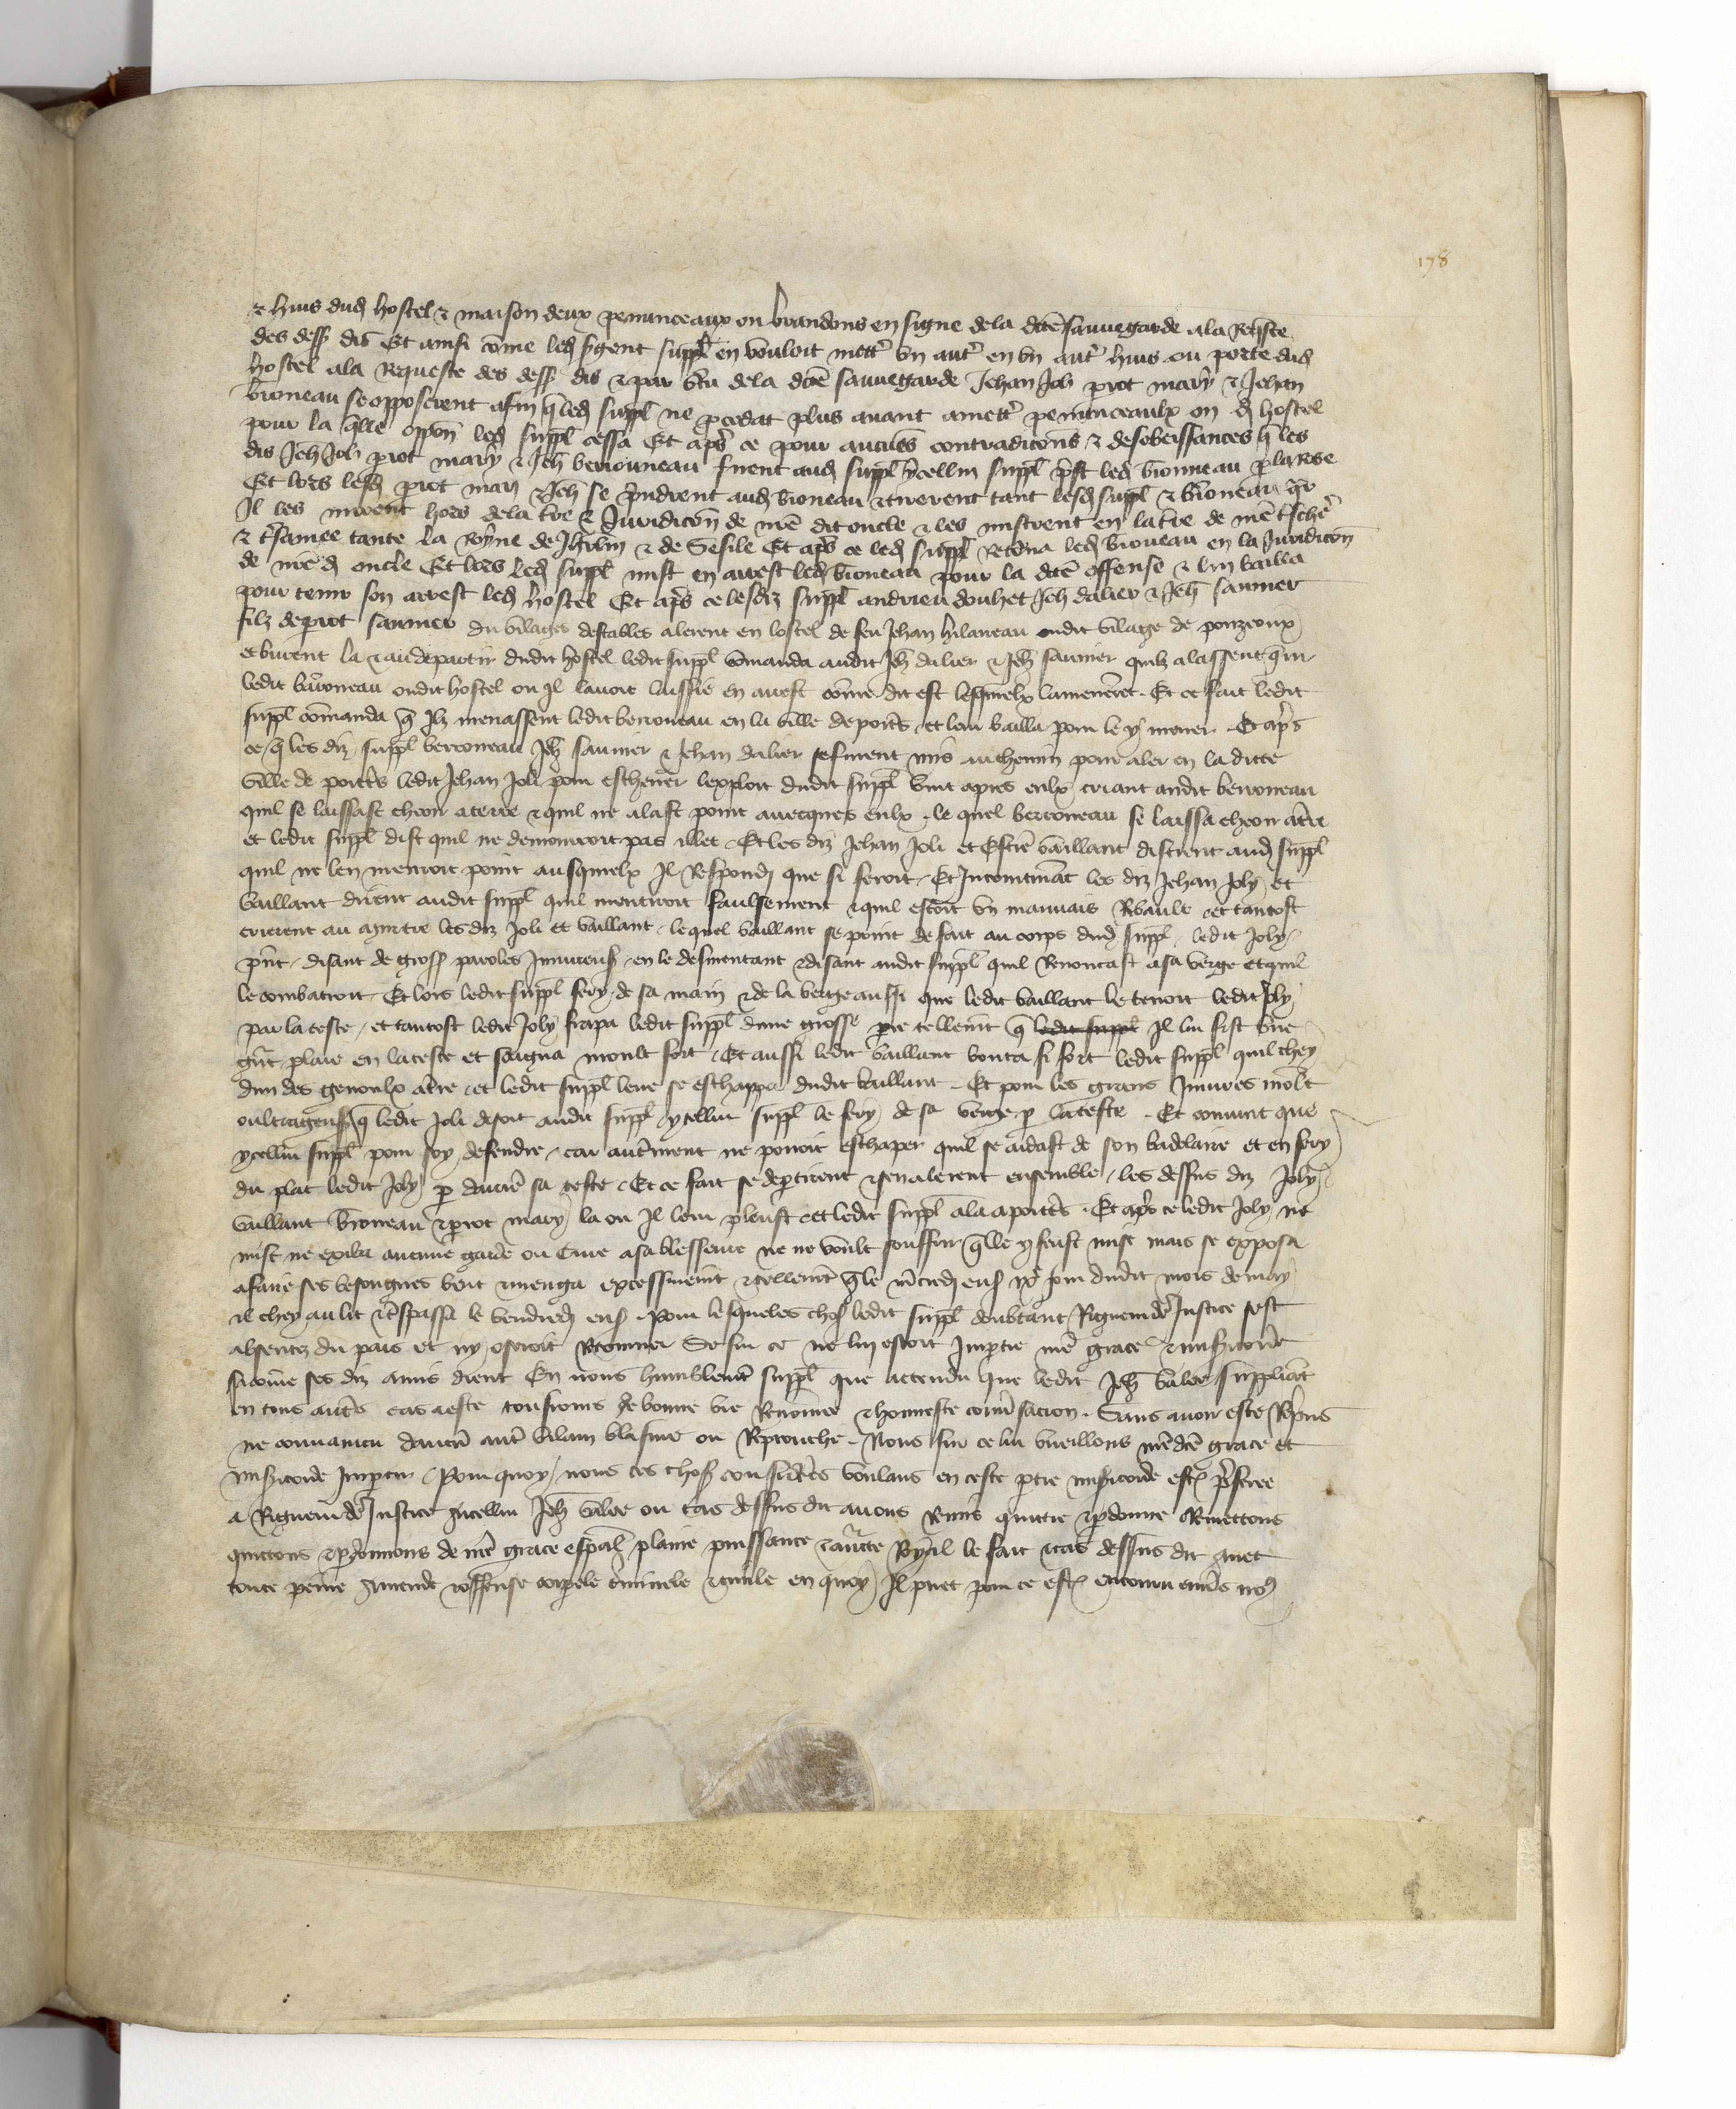 178
& huis dud hostel & maison deux penunceaux ou brandons en signe dela dcē sauuegarde ala Reqste
des dess dis Et ainsi cōme led sgent suppl en vouloit mettr vn autr en vn autr huis ou porte dud
hostel ala Requeste des dess dis & par vtu dela dcē sauuegarde Jehan Joli prot mary & Jehan
bironeau se opposerent afin q led suppl ne pcedat plus auant a mettr penunceaulx ou d hostel
pour la qlle oppōn led suppl cessa Et aps ce pour aucues contradicōns & desobeissances q les
dis Jeh Joli prot mary & Jeh berronneau firent aud suppl ycellui suppl prist led bironneau p la Rose
Et lors lesd prot mary & Jeh se prindrent aud bironeau & tirerent tant lesd suppl & bironeau q
Il les mirent hors dela tre & Juridicōn de nrē dit oncle & les mistrent en la tre de nrē tschē
& tsamee tante la Royne de Jhrlm & de Sesile Et aps ce led suppl Retorna led bironeau en la Juridicōn
de nrē d oncle Et lors led suppl mist en arrest led bironeau pour la dcē offense & lui bailla
pour tenir son arrest led hostel Et aps ce lesdiz suppl andrieu douhet Jeh dalier & Jeh saunier
filz de prot saunier du vilages destables alerent en lostel de feu Jehan hilaneau oudit vilage de ponzioux
et burent la & au departir dudit hostel ledit suppl cōmanda audit Jeh dalier & Jeh saunier quilz alassent qrir
ledit bironeau oudit hostel ou Il lauoit laissie en arrest cōme dit est lesquielx lamenerēt Et ce fait ledit
suppl cōmanda q Ilz menassent ledit berroneau en la ville de poitrs et leur bailla pour le y mener Et aps
ce q les diz suppl berroneau Jeh saunier & Jehan dalier se furent mis au chemin pour aler en la dicte
ville de poitrs ledit Jehan Joli pour escheuer lexploit dudit suppl vint apres eulx criant audit berroneau
quil se laissast cheoir a terre & quil ne alast point auecques eulx le quel berroneau se laissa cheoir a tre
et ledit suppl dist quil ne demouroit pas illec Et les diz Jehan Joli et Estiē vaillant distrent aud suppl
quil ne len menroit point ausquielx Il Respondi que si feroit Et Incontinat les diz Jehan Joly et
vaillant dirent audit suppl quil mentiroit faulsement & quil estoit vn mauuais Ribault et tantost
crierent au murtre les diz Joli et vaillant le quel vaillant se print de fait au corps dud suppl ledit Joly
pnt disant de gross paroles Iniurieus en le desmentant & disant audit suppl quil Renoncast a sa verge et quil
le combatroit Et lors ledit suppl fery de sa main & de la verge aussi que ledit vaillant le tenoit ledit Joly
par la teste et tantost ledit Joly frapa ledit suppl dune grosse pre tellemt q ledit suppl Il lui fist vne
grāt plaie en la teste et seigna moult fort Et aussi ledit vaillant bouta si fort ledit suppl quil chey
dun des genoulx a tre et ledit suppl leue se eschappa dudit vaillant Et pour les grans Iniures molt
oultrageus q ledit Joli disoit audit suppl ycellui suppl le fery de sa verge p la teste Et conuint que
ycellui suppl pour soy defendre car autrement ne pouoit eschaper quil se aidast de son badelaire et en fery
du plat ledit Joly p derrie sa teste Et ce fait se departirent & sen alerent ensemble les dessus diz Joly
vaillant bironeau & prot mary la ou Il leur pleust et ledit suppl ala a poitrs Et aps ce ledit Joly ne
mist ne exiba aucune garde ou cure a sa blesseure ne ne voult souffrir qlle y feust mise mais se exposa
a faire ses besongnes beut & menga excessiuemt & tellemt q le mcredi ens xxe Jour dudit mois de may
il chey au lit & trespassa le vendredi ens Pour lesqueles chos ledit suppl doubtant Riguer de Justice sest
absentez du pais et ny oseroit Retourner Se sur ce ne lui estoit Impartie nrē grace & misicorde
si cōme ses diz amis dient En nous humblemt suppl que attendu que ledit Jeh valee suppliāt
en tous autres cas a este tousiours de bonne vie Renōmee & honneste couuersacion Sans auoir este Repris
ne conuaincu daucū autre vilain blasme ou Reprouche Nous sur ce lui vueillons nrē dcē grace et
misicorde Impartir Pour quoy nous ces chos considerees voulans en ceste ptie misicorde estre pferee
a Riguer de Justice Aicellui Jeh valee ou cas dessus dit auons Remis quictie & pdonne & Remettons
quictons & pdonnons de nrē grace espal plaine puissance & aucte Royal le fait & cas dessus dit auec
toute peine amende & offense corpele criminele & ciuile en quoy Il puet pour ce estre encouru enuers nos